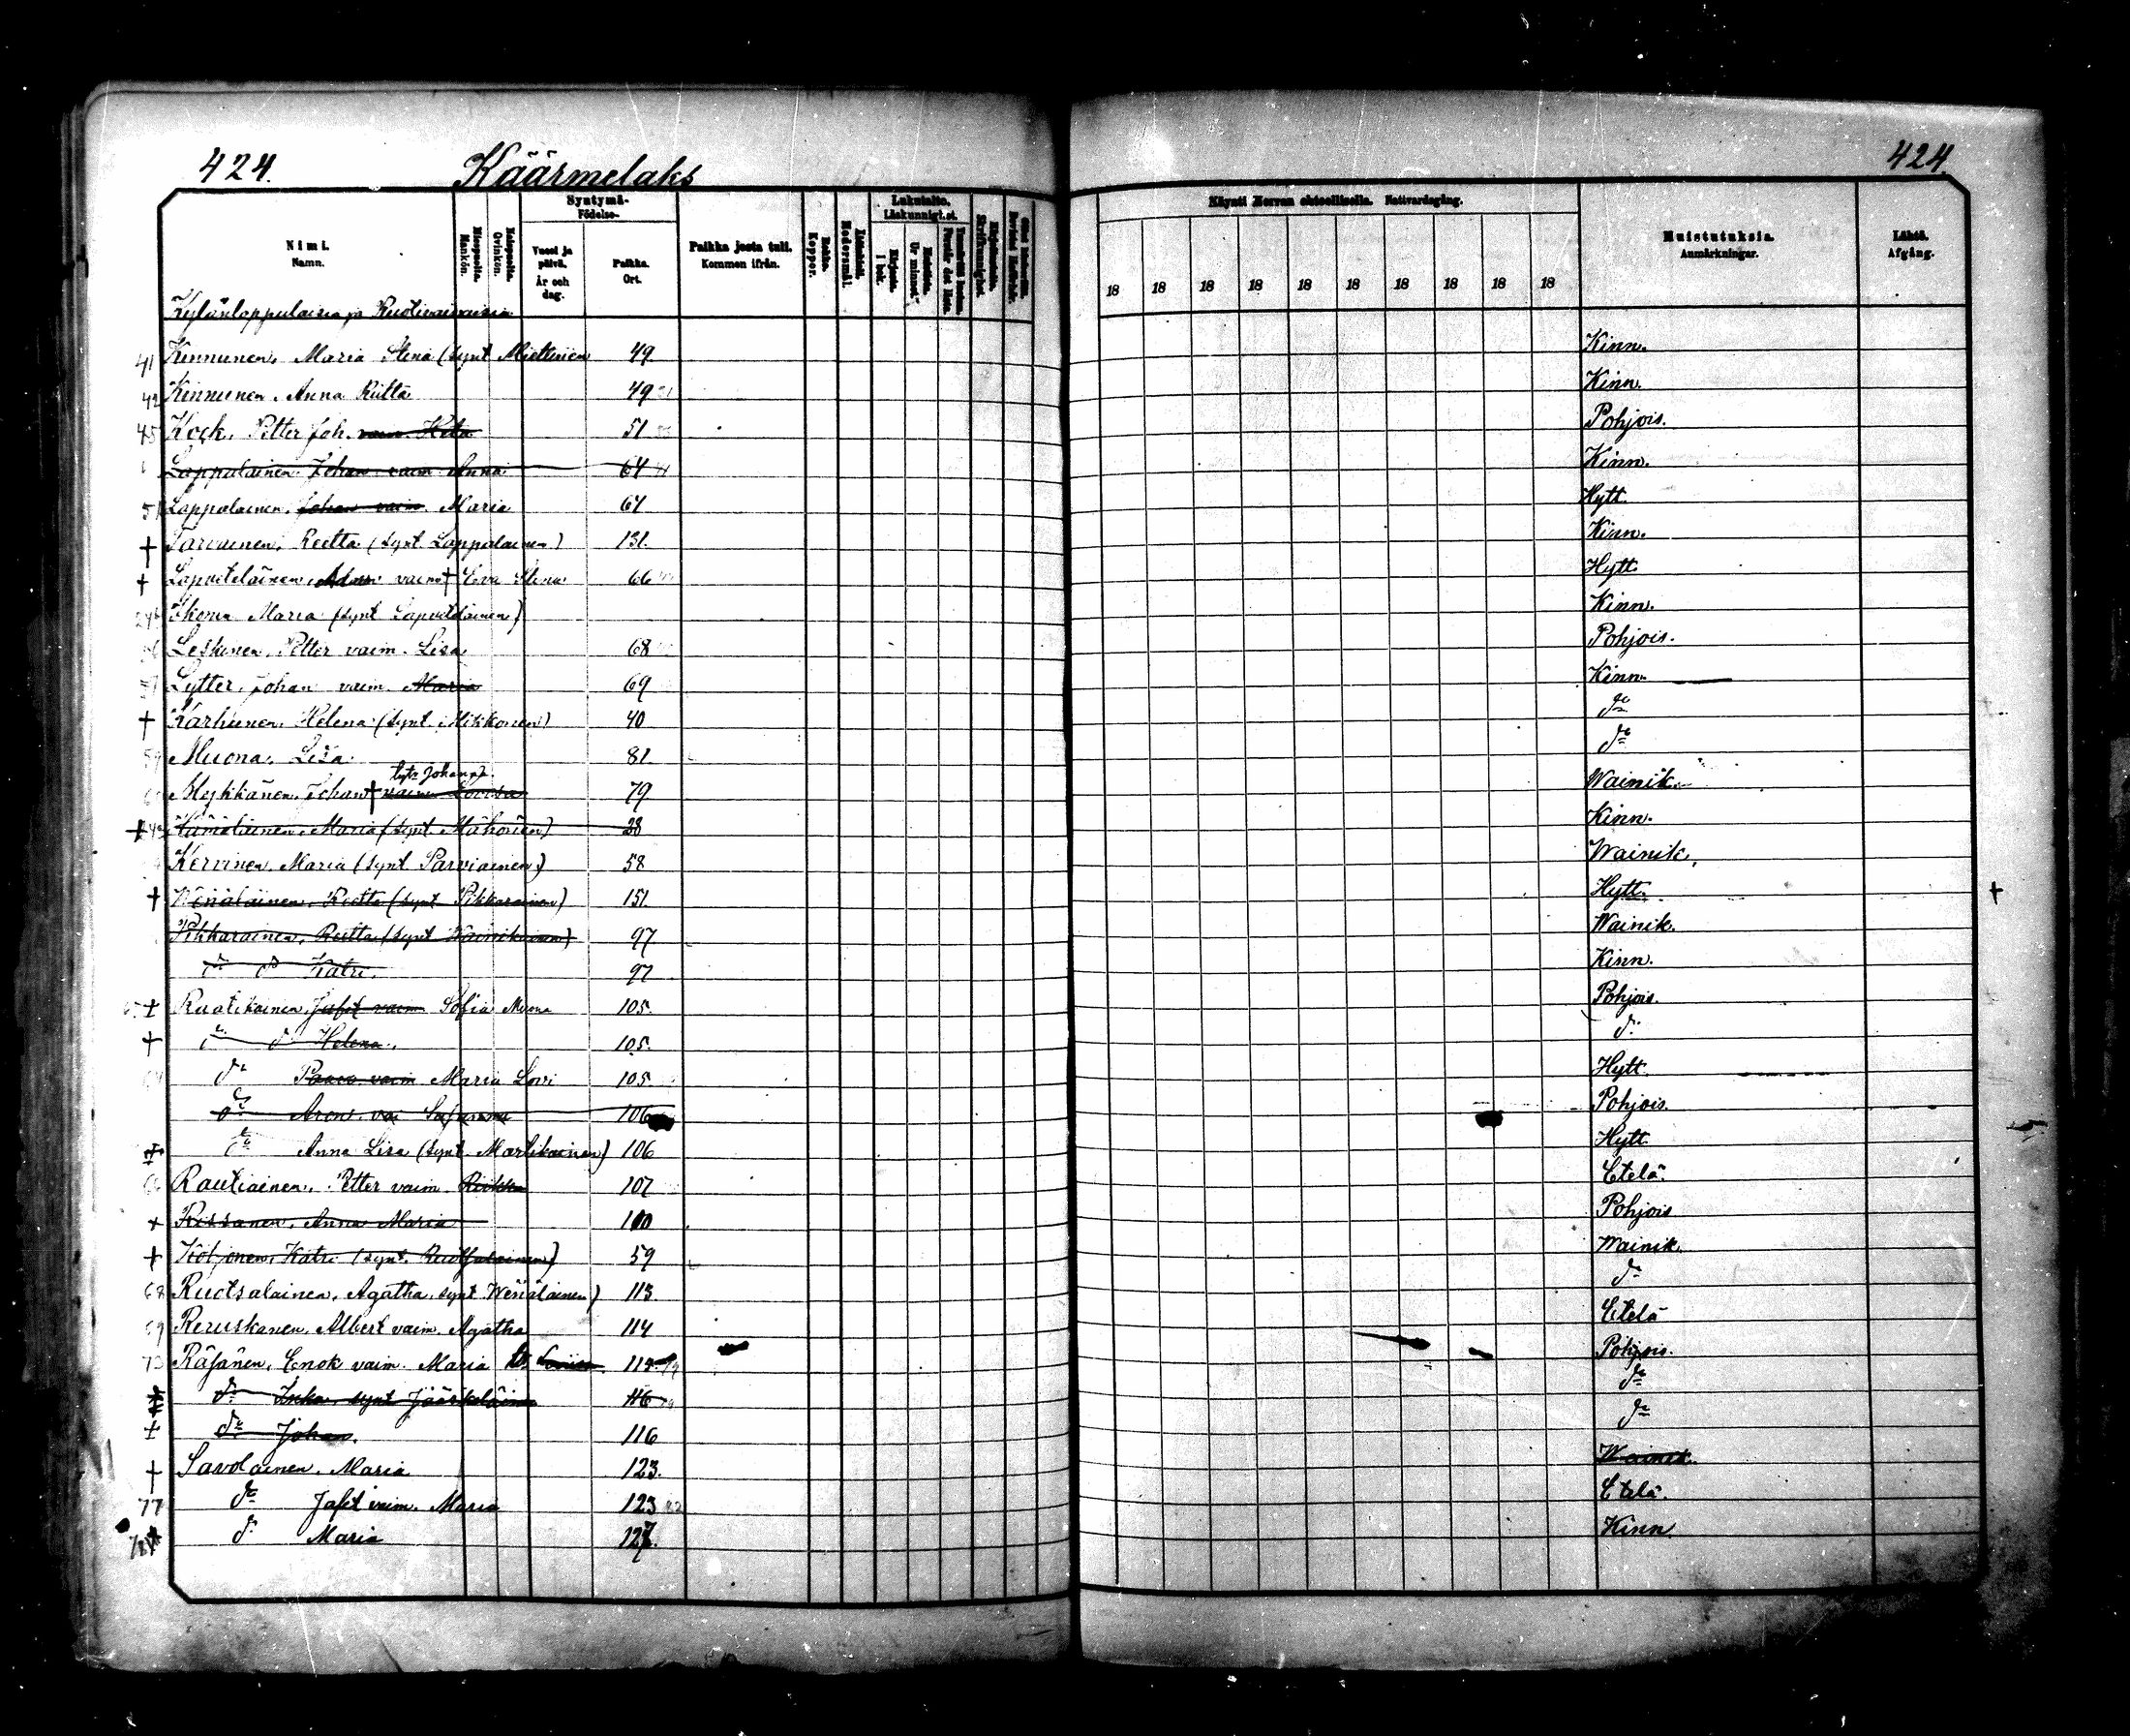 424. Käärmelaks 424.
Nimi. Namn. Miespuolia. Mankön. Vaimopuolia. Qvinkön. Syntymä- Födelse- Vuosi ja päivä. År och dag. Paikka. Ort. Paikka josta tuli. Kommen ifrån. Rokko. Koppor. Modersmål. Lukutaito. Läskunnighet. Kirjasta. I bok. Ur minnet. Käynti Herran ehtoollisella. Nattvardsgång. 18 18 18 18 18 18 18 18 18 18 Muistutuksia. Anmärkningar. Lähtö. Afgång.
Kylänloppulaisia ja Ruotivaivaisia
41 Kinnunen, Maria Stina (synt. Miettinen 49 Kinn.
42 Kinnunen, Anna Riitta 49 Kinn.
45 Kock, Petter Joh. vaim. 51 Pohjois.
Lappalainen Johan vaim Anna 64 Kinn.
51 Lappalainen, Johan vaim Maria 64 Hytt.
+ Tarvainen, Reetta (synt. Lappalainen) 131. Kinn.
+ Lapveteläinen, Adam vaim + Eva Stina 66 Hytt.
Ikonen Maria (synt Lapveteläinen) Kinn.
Leskinen, Petter vaim. Lisa 68 Pohjois.
Lytter, Johan vaim. Maria 69 Kinn.
+ Karhunen, Helena (synt. Mikkonen) 40 do
Muona, Lisa 81 do
tytr Johanna
Mykkänen, Johan + vaim Lovisa 79 Wainik.
+ Hämäläinen, Maria (synt Mähönen) 38 Kinn.
Kervinen, Maria (synt Parviainen) 58 Wainik.
+ Wenäläinen, Reetta (synt Pikkarainen) 151. Hytt. +
Pikkarainen, Reetta (synt Wainikainen) 97 Wainik.
do do Katri. 97 Kinn.
+ Ruotikainen, Jafet vaim Sofia Muona 105. Pohjois.
+ do do Helena. 105. do
do Paavo vaim Maria Lovi 105 Hytt.
do Aron. va Susanna 106 Pohjois.
+ do Anna Lisa (synt. Martikainen) 106 Hytt
Rautiainen, Petter vaim. Riikka 107 Etelä.
+ Rissanen, Anna Maria 110 Pohjois
+ Katri (synt. Ruotsalainen) 59 Wainik.
68 Ruotsalainen, Agatha, synt Wenäläinen) 113. do
69 Reruskanen, Albert vaim. Agatha 114 Etelä
73 Räsänen, Enok vaim. Maria Loviisa 115 Pohjois.
+ do synt Jääskeläinen 116 do
+ do Johan. 116 do
+ Savolainen, Maria 123. Wainik.
77 do Jafet vaim. Maria 123 Etelä.
do Maria 127. Kinn.